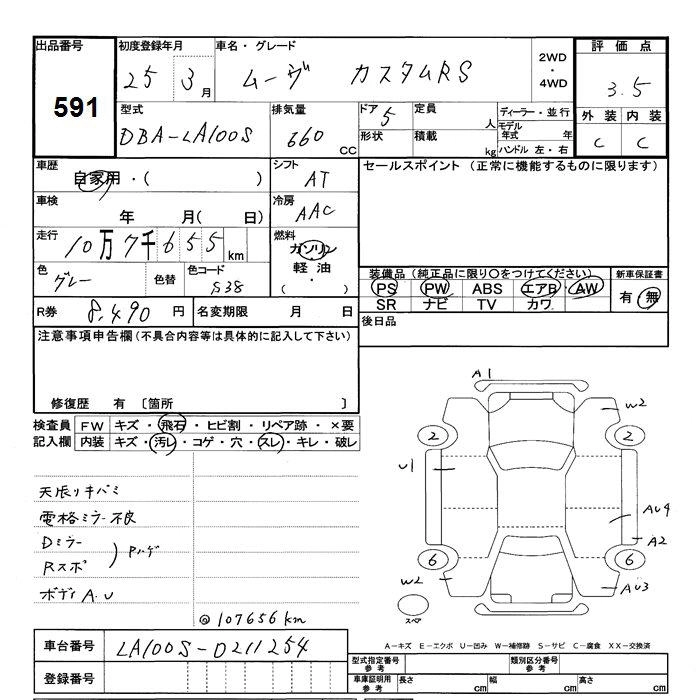 出品番号 591
初度登録年月 25 3 月
車名・グレード ムーヴ カスタムRS
2WD・4WD
評価点 3.5
外装 内装
C C
型式 DBA-LA100S
排気量 660 CC
ドア 5
形状
定員 人
積載 kg
ディーラー・並行
モデル年式 年
ハンドル 左・右
車歴 自家用・( )
シフト AT
セールスポイント (正常に機能するものに限ります)
車検 年 月( 日)
冷房 AAC
走行 10万7千655 km
燃料 ガソリン
軽油
・( )
色 グレー 色替 色コード S38
装備品(純正品に限り○をつけてください)
PS PW ABS エアB AW
SR ナビ TV カワ
新車保証書
有・無
R券 8,490 円
名変期限 月 日
後日品
注意事項申告欄(不具合内容等は具体的に記入して下さい)
修復歴 有 〔箇所 〕
検査員記入欄
FW キズ・飛石・ヒビ割・リペア跡・×要
内装 キズ・汚レ・コゲ・穴・スレ・キレ・破レ
天張リキバミ
電格ミラー不良
Dミラー
Rスポ ) Pハゲ
ボディA.U
@107656km
A1
W2
2 2
U1
AU4
A2
6 6
W2
AU3
スペア
A－キズ E－エクボ U－凹み W－補修跡 S－サビ C－腐食 XX－交換済
車台番号 LA100S-0211254
登録番号
型式指定番号 参考
類別区分番号 参考
車庫証明用 参考
長さ cm 幅 cm 高さ cm